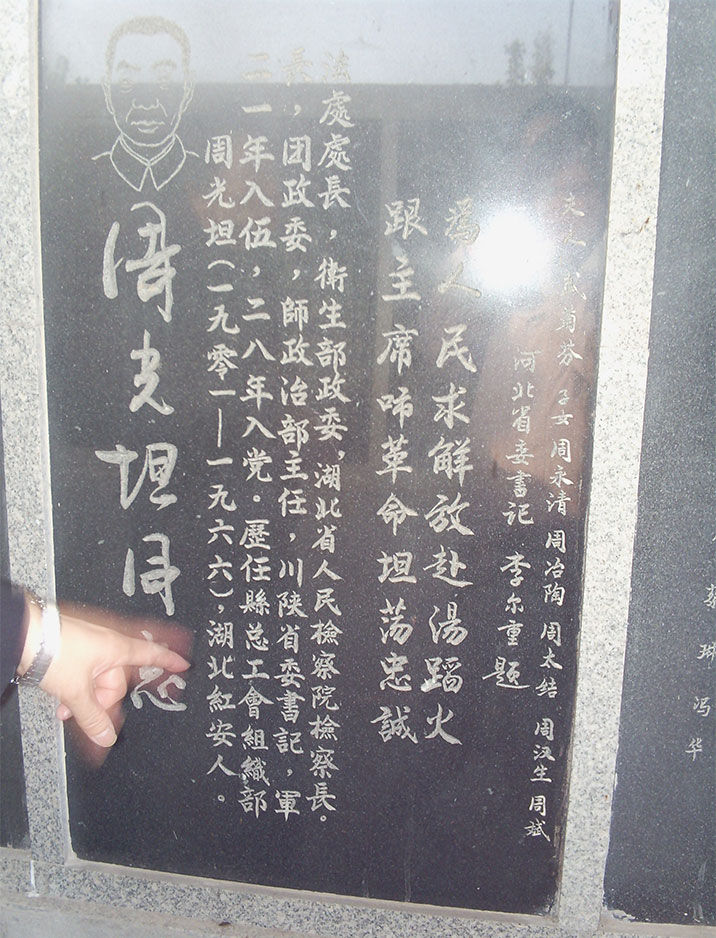 周光坦同志
周光坦(一九零一—一九六六),湖北紅安人。
二一年入伍,二八年入党。歷任縣总工會組織部
長,团政委,師政治部主任,川陕省委書記,軍
法處處長,衛生部政委,湖北省人民檢察院檢察長。
跟主席革命坦荡忠誠
為人民求解放赴湯蹈火
河北省委書记 李尔重 题
夫人 菊芬 子女 周永清 周冶陶 周太结 周汉生 周斌
冯华